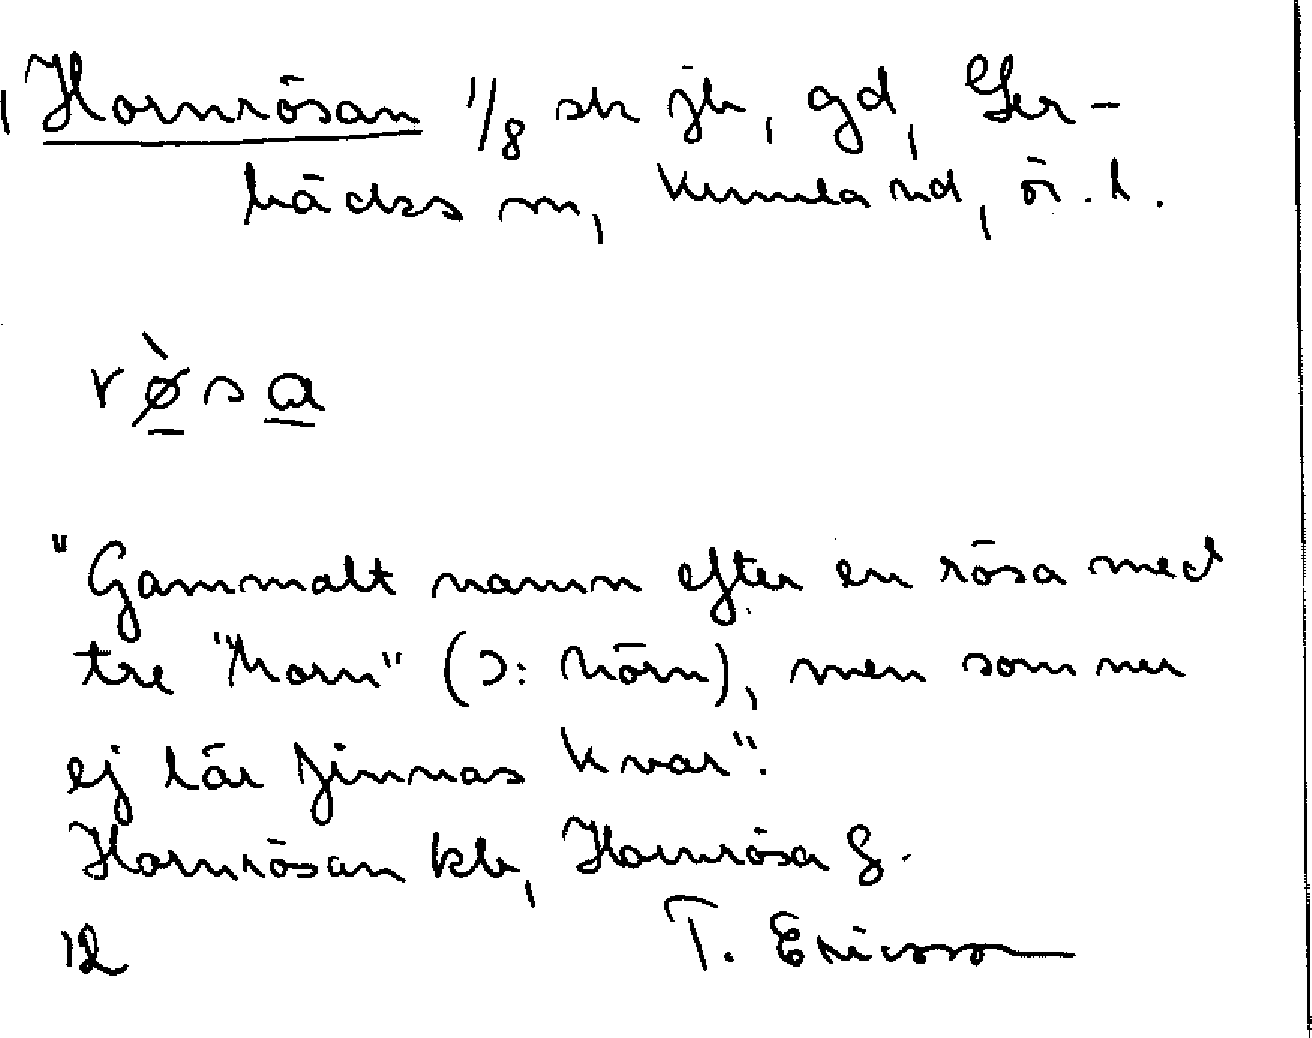 Hornrösan 1/8 sk jb, gd, Ler-
bäcks sn, Kumla hd, ör. l.
rø̀sa
"Gammalt namn efter en rösa med
tre "horn" (ↄ: hörn), men som nu
ej lär finnas kvar".
Hornrösan kb, Hornrösa G.
12 T. Ericsson